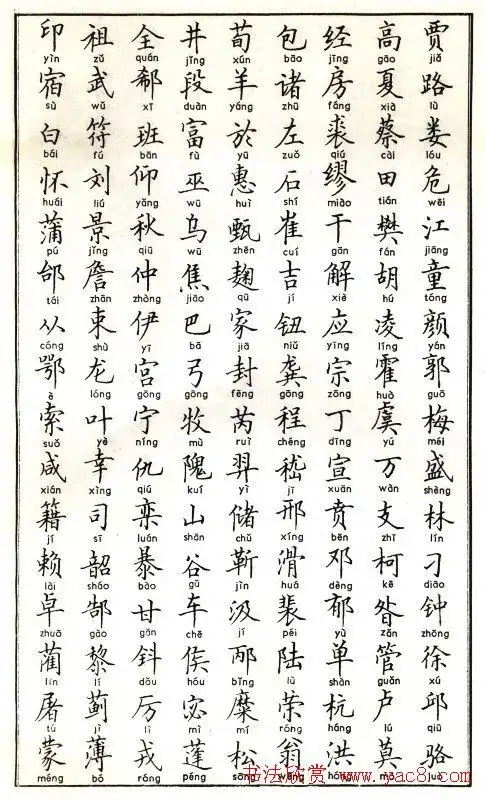 贾 jiǎ 路 lù 娄 lóu 危 wēi 江 jiāng 童 tóng 颜 yán 郭 guō 梅 méi 盛 shèng 林 lín 刁 diāo 钟 zhōng 徐 xú 邱 qiū 骆 luò
高 gāo 夏 xià 蔡 cài 田 tián 樊 fán 胡 hú 凌 líng 霍 huò 虞 yú 万 wàn 支 zhī 柯 kē 昝 zǎn 管 guǎn 卢 lú 莫 mò
经 jīng 房 fáng 裘 qiú 缪 miào 干 gān 解 xiè 应 yīng 宗 zōng 丁 dīng 宣 xuān 贲 bēn 邓 dèng 郁 yù 单 shàn 杭 háng 洪 hóng
包 bāo 诸 zhū 左 zuǒ 石 shí 崔 cuī 吉 jí 钮 niǔ 龚 gōng 程 chéng 嵇 jī 邢 xíng 滑 huá 裴 péi 陆 lù 荣 róng 翁 wēng
荀 xún 羊 yáng 於 yū 惠 huì 甄 zhēn 麹 qū 家 jiā 封 fēng 芮 ruì 羿 yì 储 chǔ 靳 jìn 汲 jí 邴 bǐng 糜 mí 松 sōng
井 jǐng 段 duàn 富 fù 巫 wū 乌 wū 焦 jiāo 巴 bā 弓 gōng 牧 mù 隗 kuí 山 shān 谷 gǔ 车 chē 侯 hóu 宓 mì 蓬 péng
全 quán 郗 xī 班 bān 仰 yǎng 秋 qiū 仲 zhòng 伊 yī 宫 gōng 宁 níng 仇 qiú 栾 luán 暴 bào 甘 gān 钭 dǒu 厉 lì 戎 róng
祖 zǔ 武 wǔ 符 fú 刘 liú 景 jǐng 詹 zhān 束 shù 龙 lóng 叶 yè 幸 xìng 司 sī 韶 sháo 郜 gào 黎 lí 蓟 jì 薄 bó
印 yìn 宿 sù 白 bái 怀 huái 蒲 pú 邰 tái 从 cóng 鄂 è 索 suǒ 咸 xián 籍 jí 赖 lài 卓 zhuō 蔺 lìn 屠 tú 蒙 méng
书法欣赏 www.yac8.com